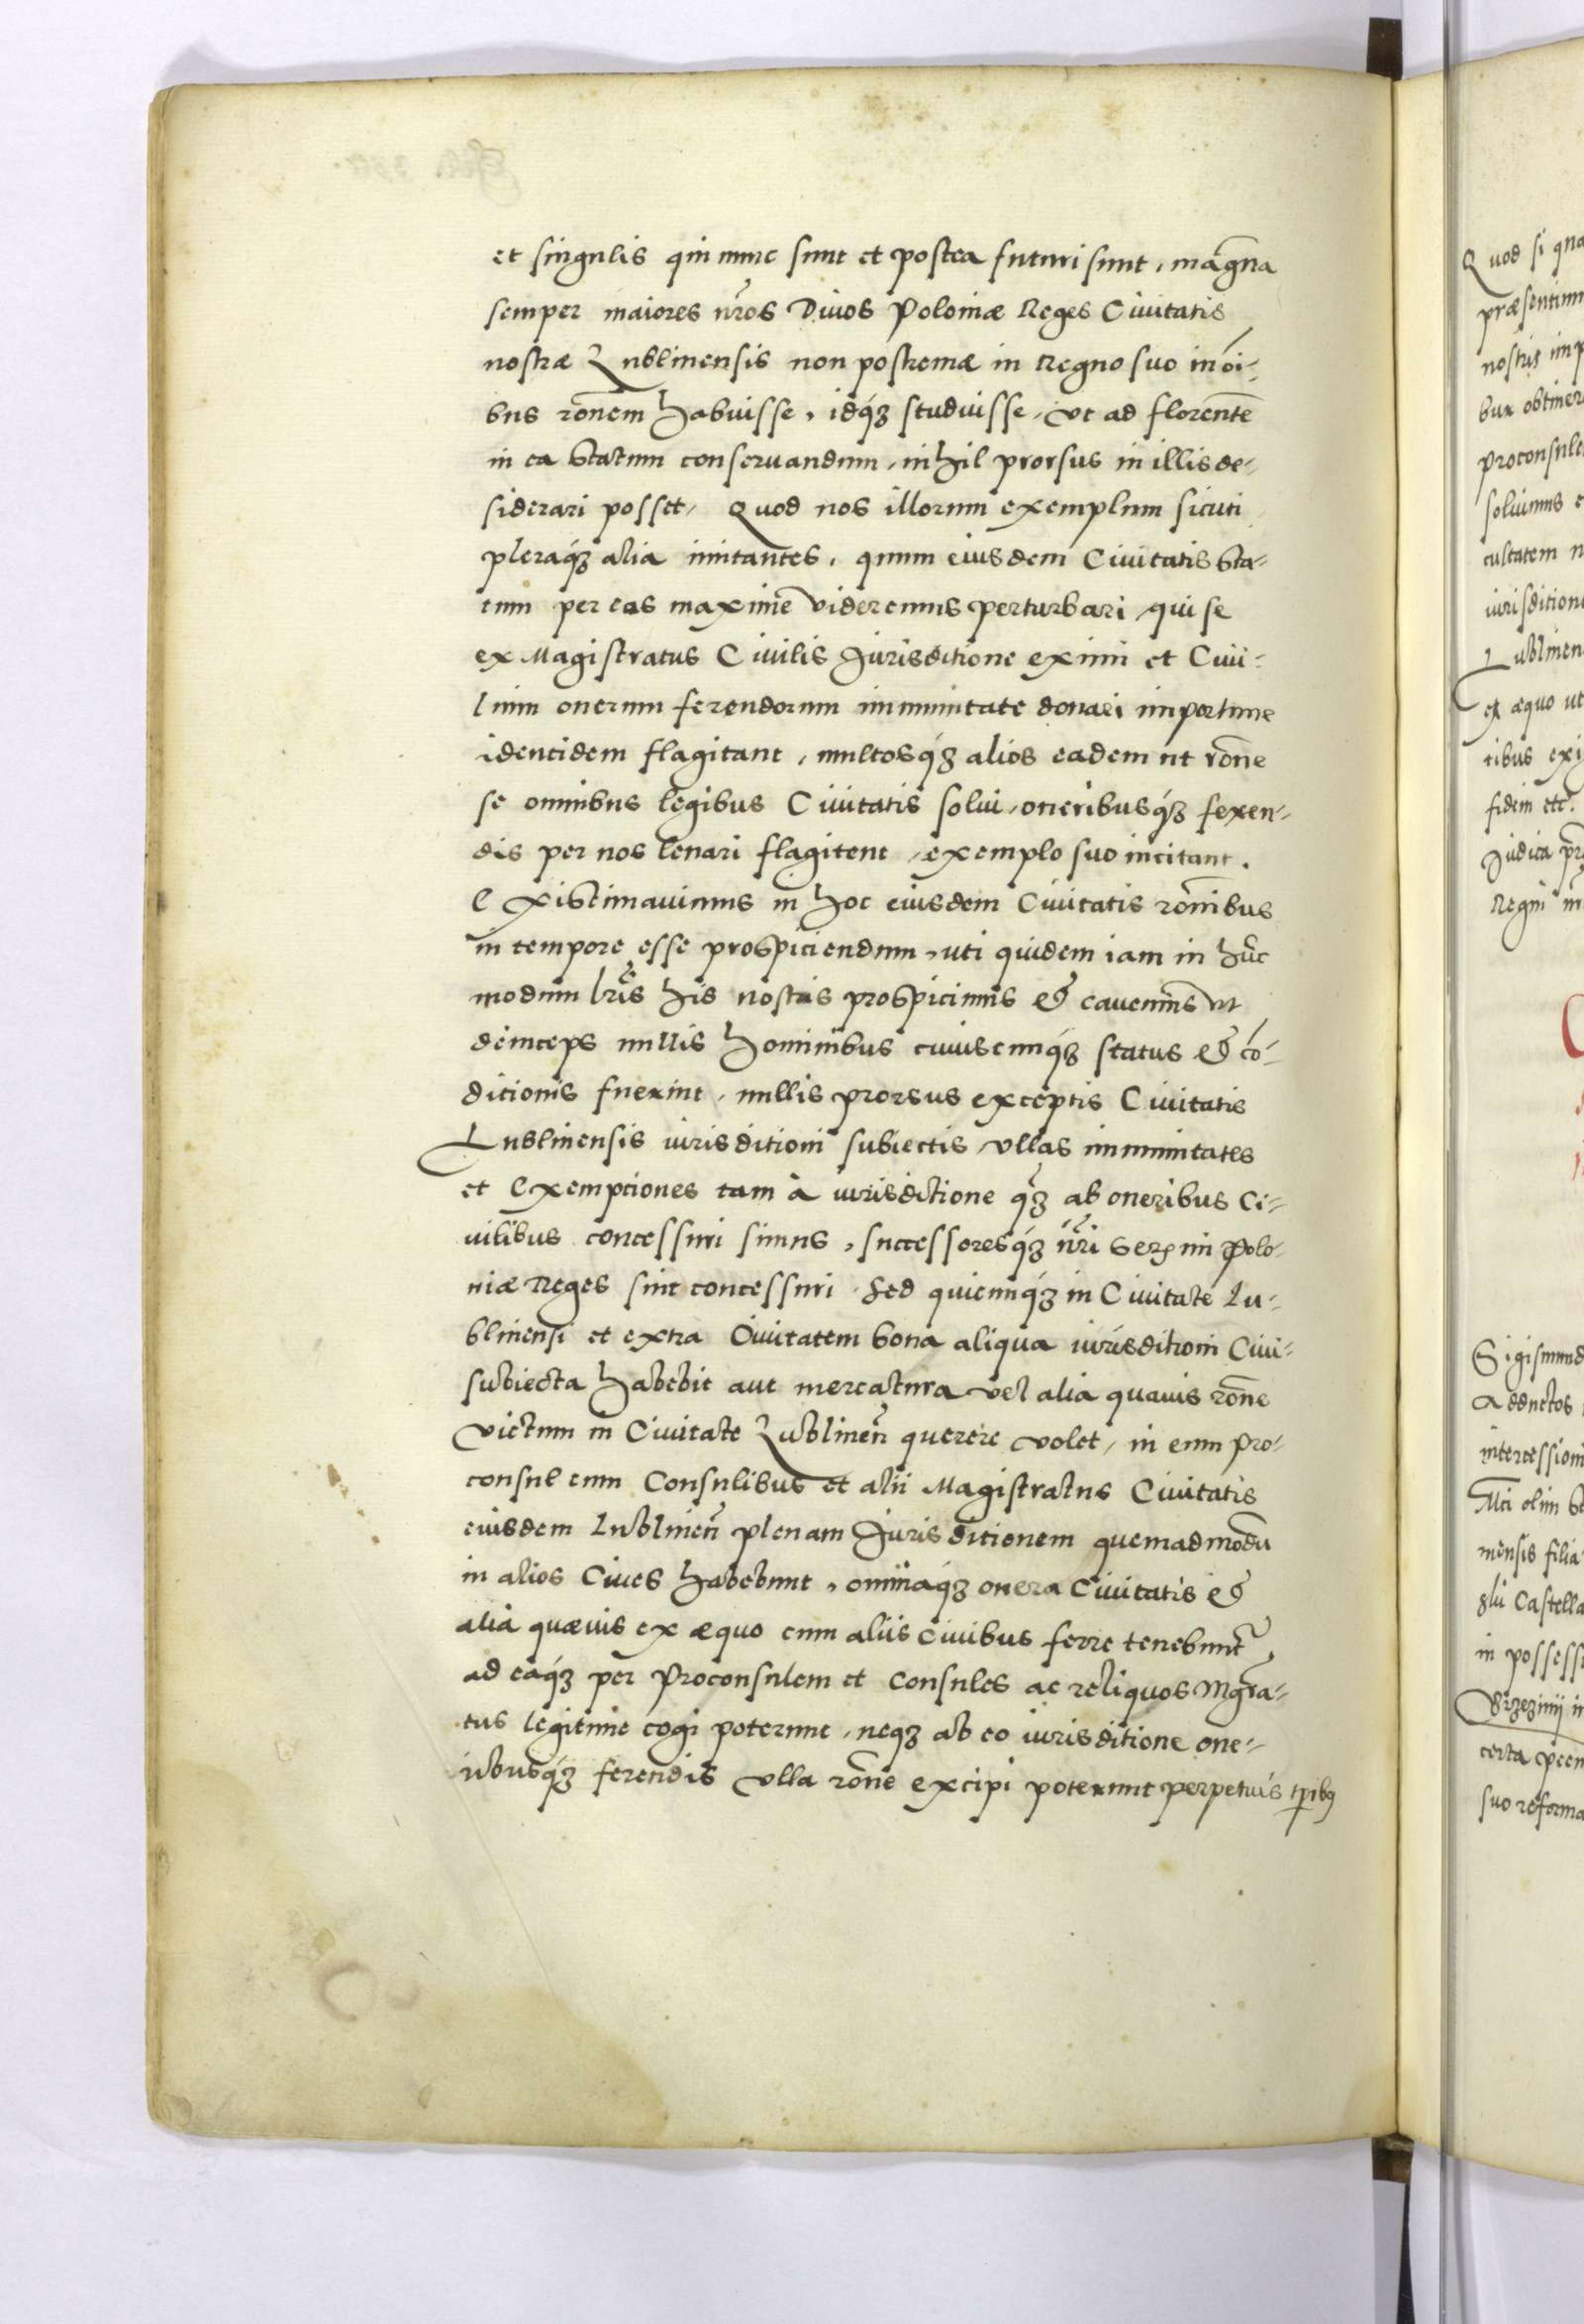 et singulis qui nunc sunt et postea futuri sunt, magna
semper maiores nros Divos Poloniæ Reges Civitatis
nostræ Lublinensis non postremæ in Regno suo in oi-
bus ronem habuisse, idq3 studuisse, ut ad florente
in ea statum conservandum, nihil prorsus in illis de-
siderari posset, Quod nos illorum exemplum sicuti
pleraq3 alia imitantes, quum eiusdem Civitatis sta-
tum per eos maxime videremus perturbari qui se
ex Magistratus Civilis Jurisditione eximi et Civi-
lium onerum ferendorum immunitate donari importune
identidem flagitant, multosq3 alios eadem ut rone
se omnibus legibus Civitatis solvi, oneribusq3 feren-
dis per nos levari flagitent, exemplo suo incitant.
Existimavimus in hoc eiusdem Civitatis ronibus
in tempore esse prospiciendum, uti quidem iam in hunc
modum lris his nostris prospicimus et cavemus ut
deinceps nullis hominibus cuiuscunq3 status et co-
ditionis fuerint, nullis prorsus exceptis Civitatis
Lublinensis iurisditioni subiectis, ullas immunitates
et Exemptiones tam à iurisditione q3 ab oneribus Ci-
vilibus concessuri simus, successoresq3 nri Sermi Polo-
niæ Reges sint concessuri. Sed quicunq3 in Civitate Lu-
blinensi et extra Civitatem bona aliqua iurisditioni Civi-
subiecta habebit aut mercatura vel alia quavis rone
victum in Civitate Lublinen querere volet, in eum Pro-
consul cum Consulibus et alii Magistratus Civitatis
eiusdem Lublinen plenam Jurisditionem quemadmodu
in alios Cives habebunt, omniaq3 onera Civitatis et
alia quævis ex æquo cum aliis civibus ferre tenebunt
ad eaq3 per Proconsulem et Consules ac reliquos Mgra-
tus legitime cogi poterunt, neq3 ab eo iurisditione one-
ribusq3 ferendis ulla rone excipi poterunt perpetuis tpibq